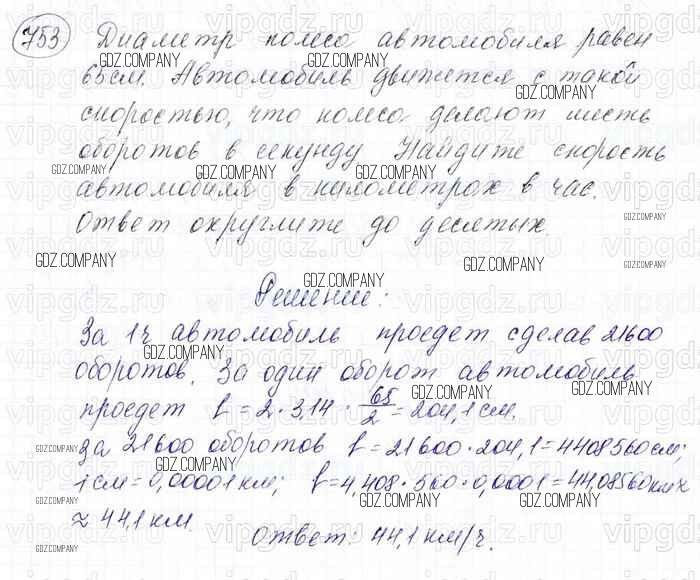 753 Диаметр колесо автомобиля равен
65 см. Автомобиль движется с такой
скоростью, что колесо делают шесть
оборотов в секунду Найдите скорость
автомобиля в километрах в час.
Ответ округлите до десятых.
Решение:
За 1 ч автомобиль проедет сделав 21600
оборотов. За один оборот автомобиль
проедет l = 2 · 3,14 · 65/2 = 204,1 см.
За 21600 оборотов l = 21600 · 204,1 = 4408560 см;
1 см = 0,00001 км; l = 4,408 · 560 · 0,0001 = 44,08560 км ≈
≈ 44,1 км.
Ответ: 44,1 км/ч.